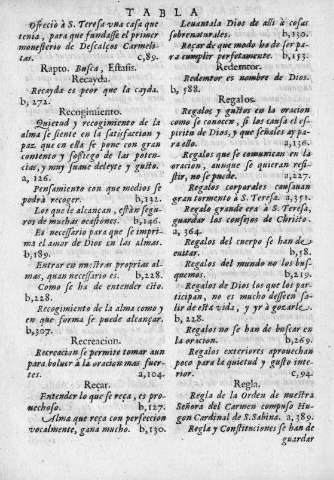 TABLA
Ofreciò à S. Teresa vna casa que
tenia, para que fundasse el primer
monesterio de Descalços Carmeli-
tas. c,89.
Rapto. Busca, Estasis.
Recayda.
Recayda es peor que la cayda.
b, 272.
Recogimiento.
Quietud y recogimiento de la
alma se siente en la satisfaccion y
paz que en ella se pone con gran
contento y sossiego de las poten-
cias, y muy suaue deleyte y gusto.
a, 126.
Pensamiento con que medios se
podrà recoger. b,132.
Los que le alcançan, estàn segu-
ros de muchas ocasiones. b,146.
Es necessario para que se impri-
ma el amor de Dios en las almas.
b,189.
Entrar en nuestras proprias al-
mas, quan necessario es. b,228.
Como se ha de entender esto.
b,228.
Recogimiento de la alma como y
en que forma se puede alcançar.
b,307.
Recreacion.
Recreacion se permite tomar aun
para boluer à la oracion mas fuer-
tes. a,104.
Reçar.
Entender lo que se reça, es pro-
uechoso. b,127.
Alma que reça con perfeccion
vocalmente, gana mucho. b,130.
Leuantala Dios de alli à cosas
sobrenaturales. b,130.
Reçar de que modo ha de ser pa-
ra cumplir perfetamente. b,153.
Redemtor.
Redemtor es nombre de Dios.
b, 588.
Regalos.
Regalos y gustos en la oracion
como se conocen, si los causa el es-
piritu de Dios, y que señales ay pa-
ra ello. a,136.
Regalos que se comunican en la
oracion, aunque se quieran resi-
stir, no se puede. a,227.
Regalos corporales causauan
gran tormento à S. Teresa. a,351.
Regalo grande era à S. Teresa,
guardar los consejos de Christo.
a, 364.
Regalos del cuerpo se han de
euitar. b,58.
Regalos del mundo no los bus-
quemos. b,219.
Regalos de Dios los que los par-
ticipan, no es mucho desseen sa-
lir de esta vida, y yr à gozarle.
b, 228.
Regalos no se han de buscar en
la oracion. b,269.
Regalos exteriores aprouechan
poco para la quietud y gusto inte-
rior. c,94.
Regla.
Regla de la Orden de nuestra
Señora del Carmen compuso Hu-
gon Cardinal de S. Sabina. a,389.
Regla y Constituciones se han de
guardar